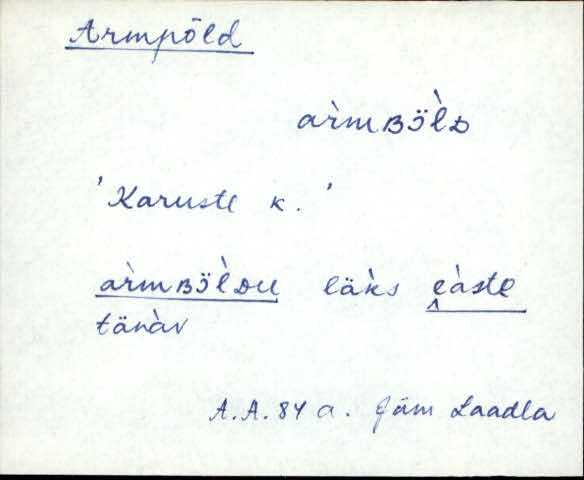 Armpõld
ar̀mʙɜ̈l̀ᴅ
'Karuste k.'
ar̀mʙɜ̈l̀ᴅu läk̀s e̯àste
tänàv
A.A. 84 a. Jäm Laadla